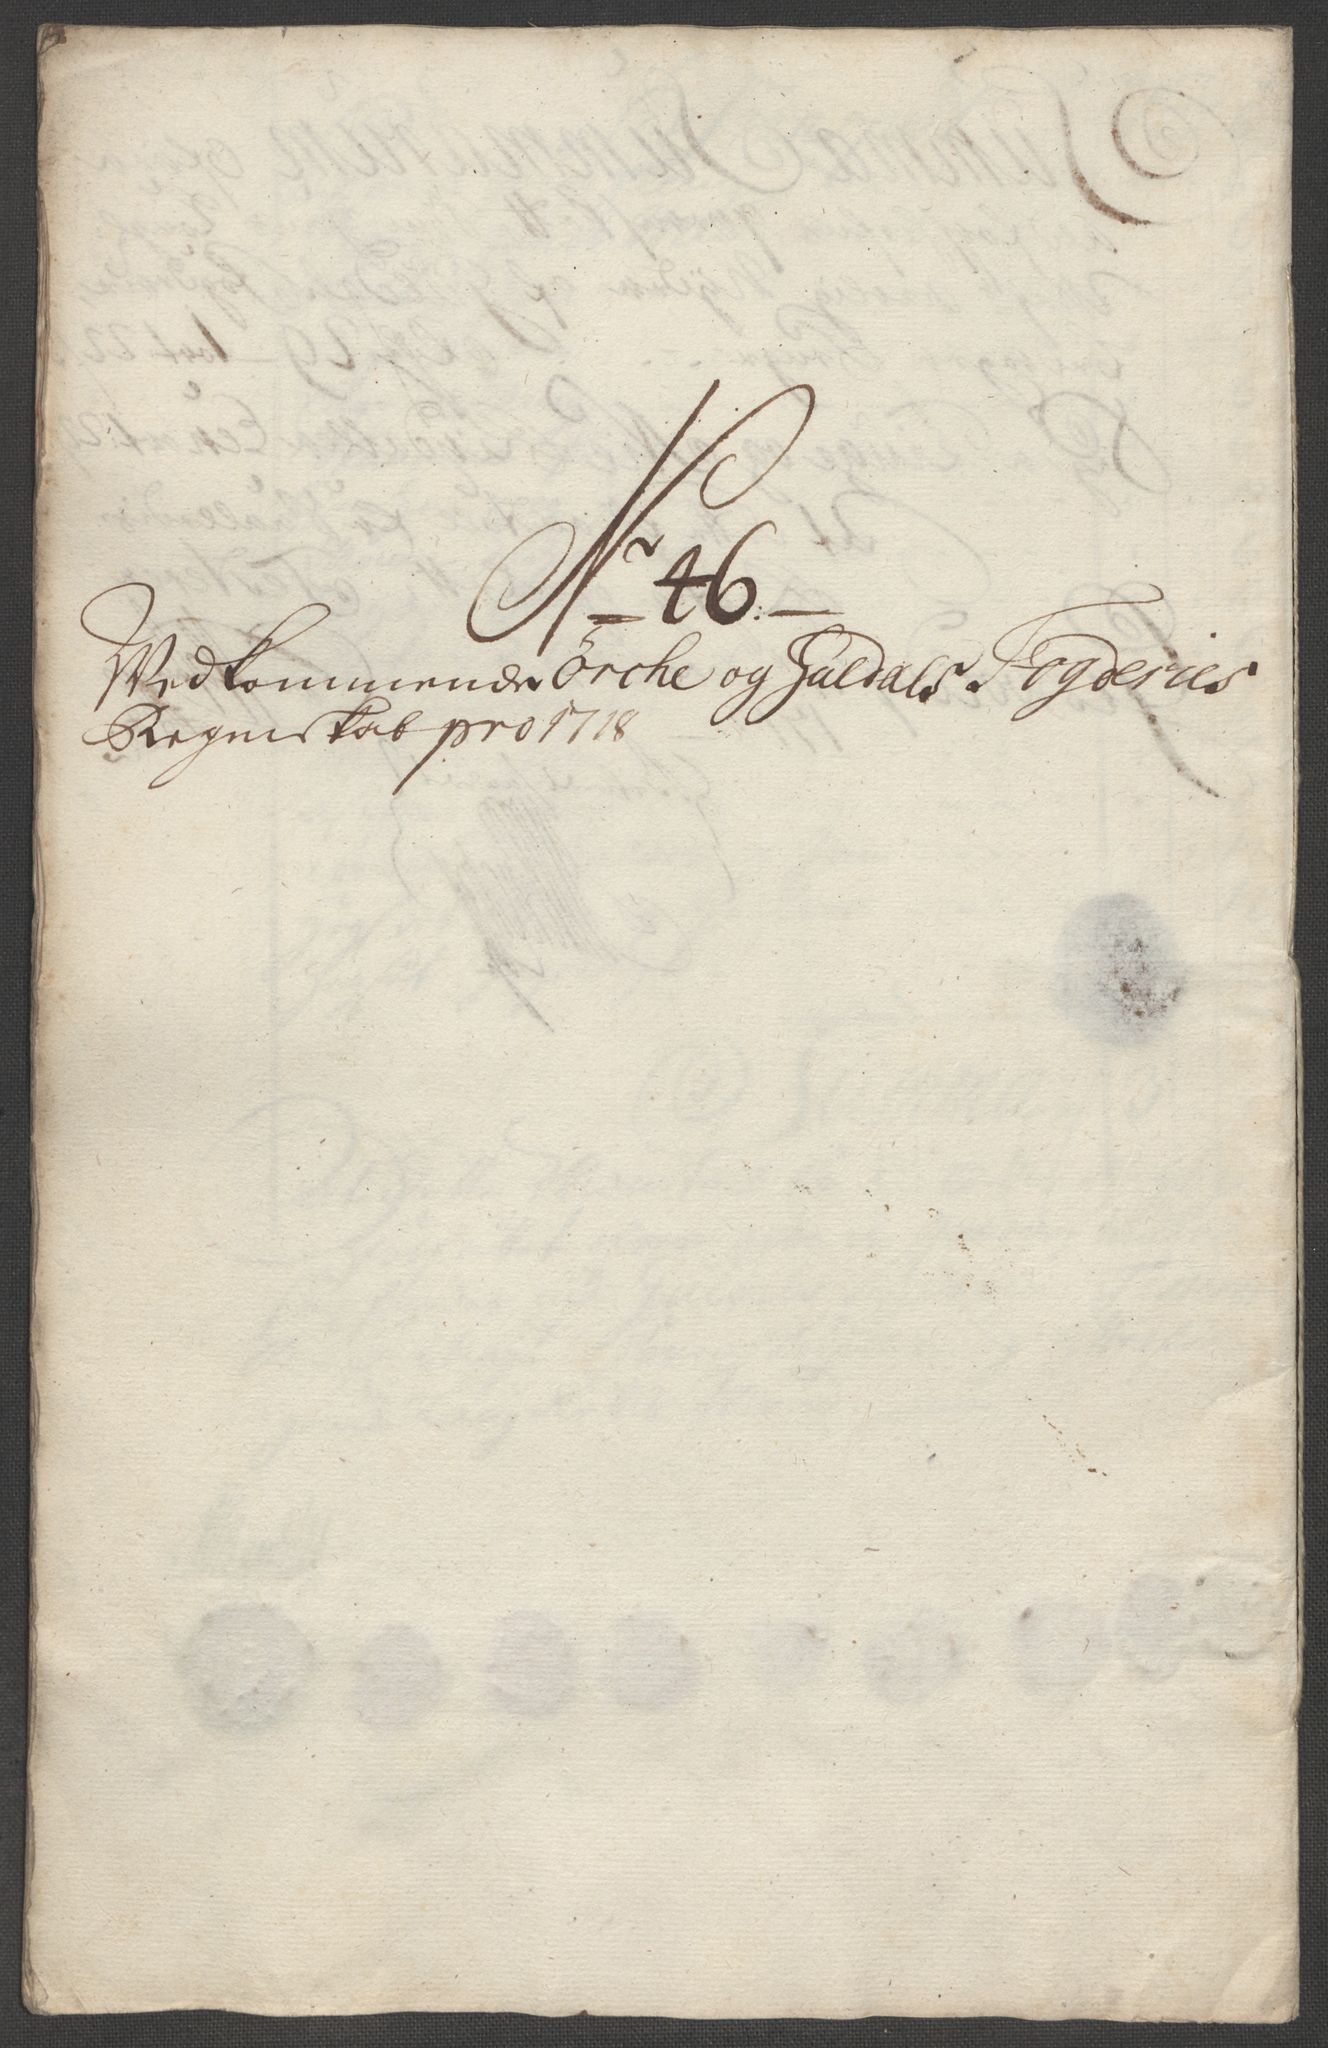 Nr 46.
Vedkommende Örche og Guldals Fogderies
Regnskab pro 1718